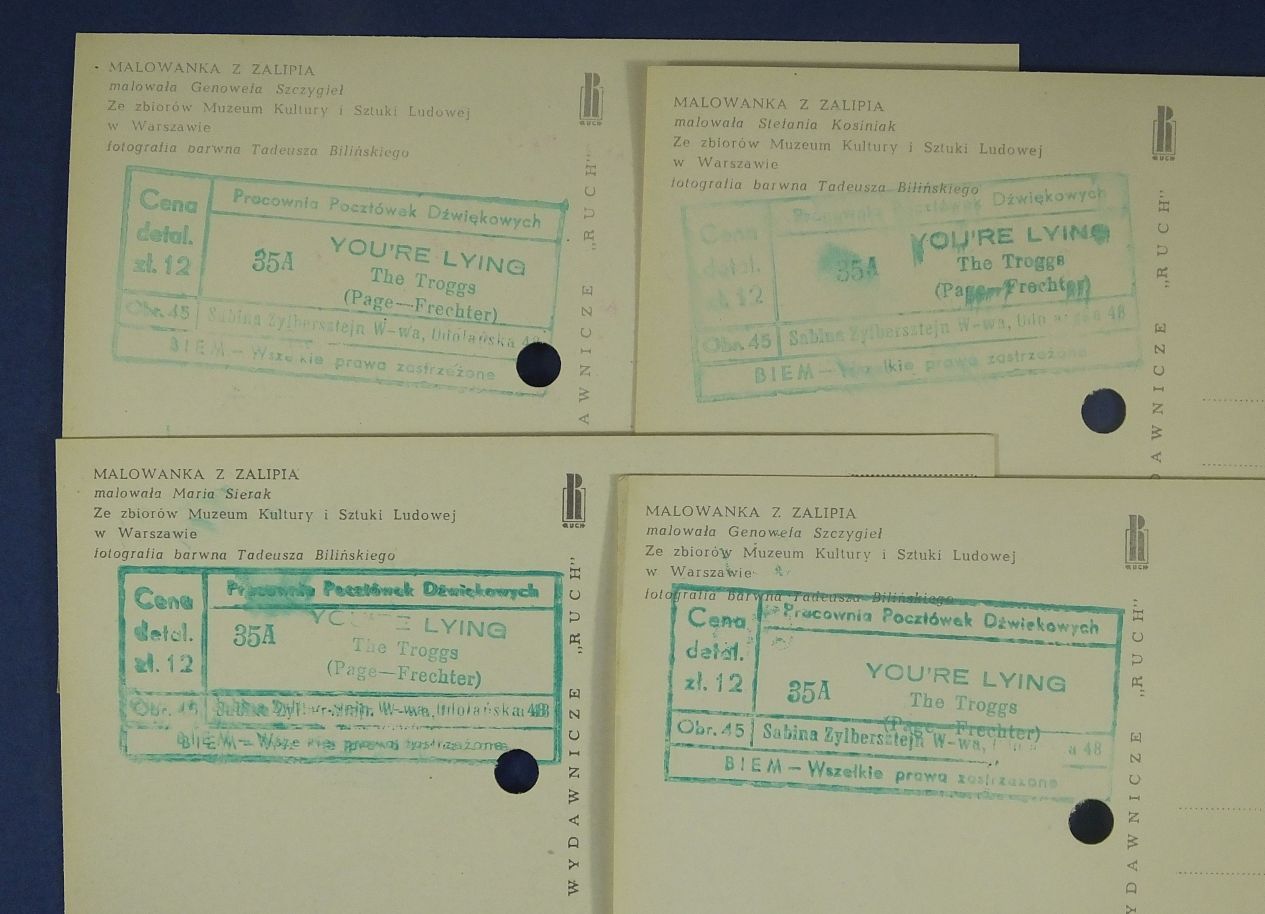 MALOWANKA Z ZALIPIA
malowała Genowefa Szczygieł
Ze zbiorów Muzeum Kultury i Sztuki Ludowej
w Warszawie
fotografia barwna Tadeusza Bilińskiego
RUCH
Cena
detal.
zł. 12
Pracownia Pocztówek Dźwiękowych
35A
YOU'RE LYING
The Troggs
(Page—Frechter)
Obr. 45
Sabina Zylbersztejn W-wa, Idolańska 48
BIEM — Wszelkie prawa zastrzeżone
AWNICZE „RUCH”
MALOWANKA Z ZALIPIA
malowała Stefania Kosiniak
Ze zbiorów Muzeum Kultury i Sztuki Ludowej
w Warszawie
fotografia barwna Tadeusza Bilińskiego
RUCH
Cena
detal.
zł. 12
Pracownia Pocztówek Dźwiękowych
35A
YOU'RE LYING
The Troggs
(Page—Frechter)
Obr. 45
Sabina Zylbersztejn W-wa, 48
BIEM — prawa zastrzeżone
DAWNICZE „RUCH”
MALOWANKA Z ZALIPIA
malowała Maria Sierak
Ze zbiorów Muzeum Kultury i Sztuki Ludowej
w Warszawie
fotografia barwna Tadeusza Bilińskiego
RUCH
Cena
detal.
zł. 12
Pracownia Pocztówek Dźwiękowych
35A
YOU'RE LYING
The Troggs
(Page—Frechter)
Obr. 45
Sabina Zylbersztejn W-wa, Idolańska 48
BIEM — Wszelkie prawa zastrzeżone
WYDAWNICZE „RUCH”
MALOWANKA Z ZALIPIA
malowała Genowefa Szczygieł
Ze zbiorów Muzeum Kultury i Sztuki Ludowej
w Warszawie
fotografia barwna Tadeusza Bilińskiego
RUCH
Cena
detal.
zł. 12
Pracownia Pocztówek Dźwiekowych
35A
YOU'RE LYING
The Troggs
(Page—Frechter)
Obr. 45
Sabina Zylbersztejn W-wa, 48
BIEM — Wszelkie prawa zastrzeżone
YDAWNICZE „RUCH”